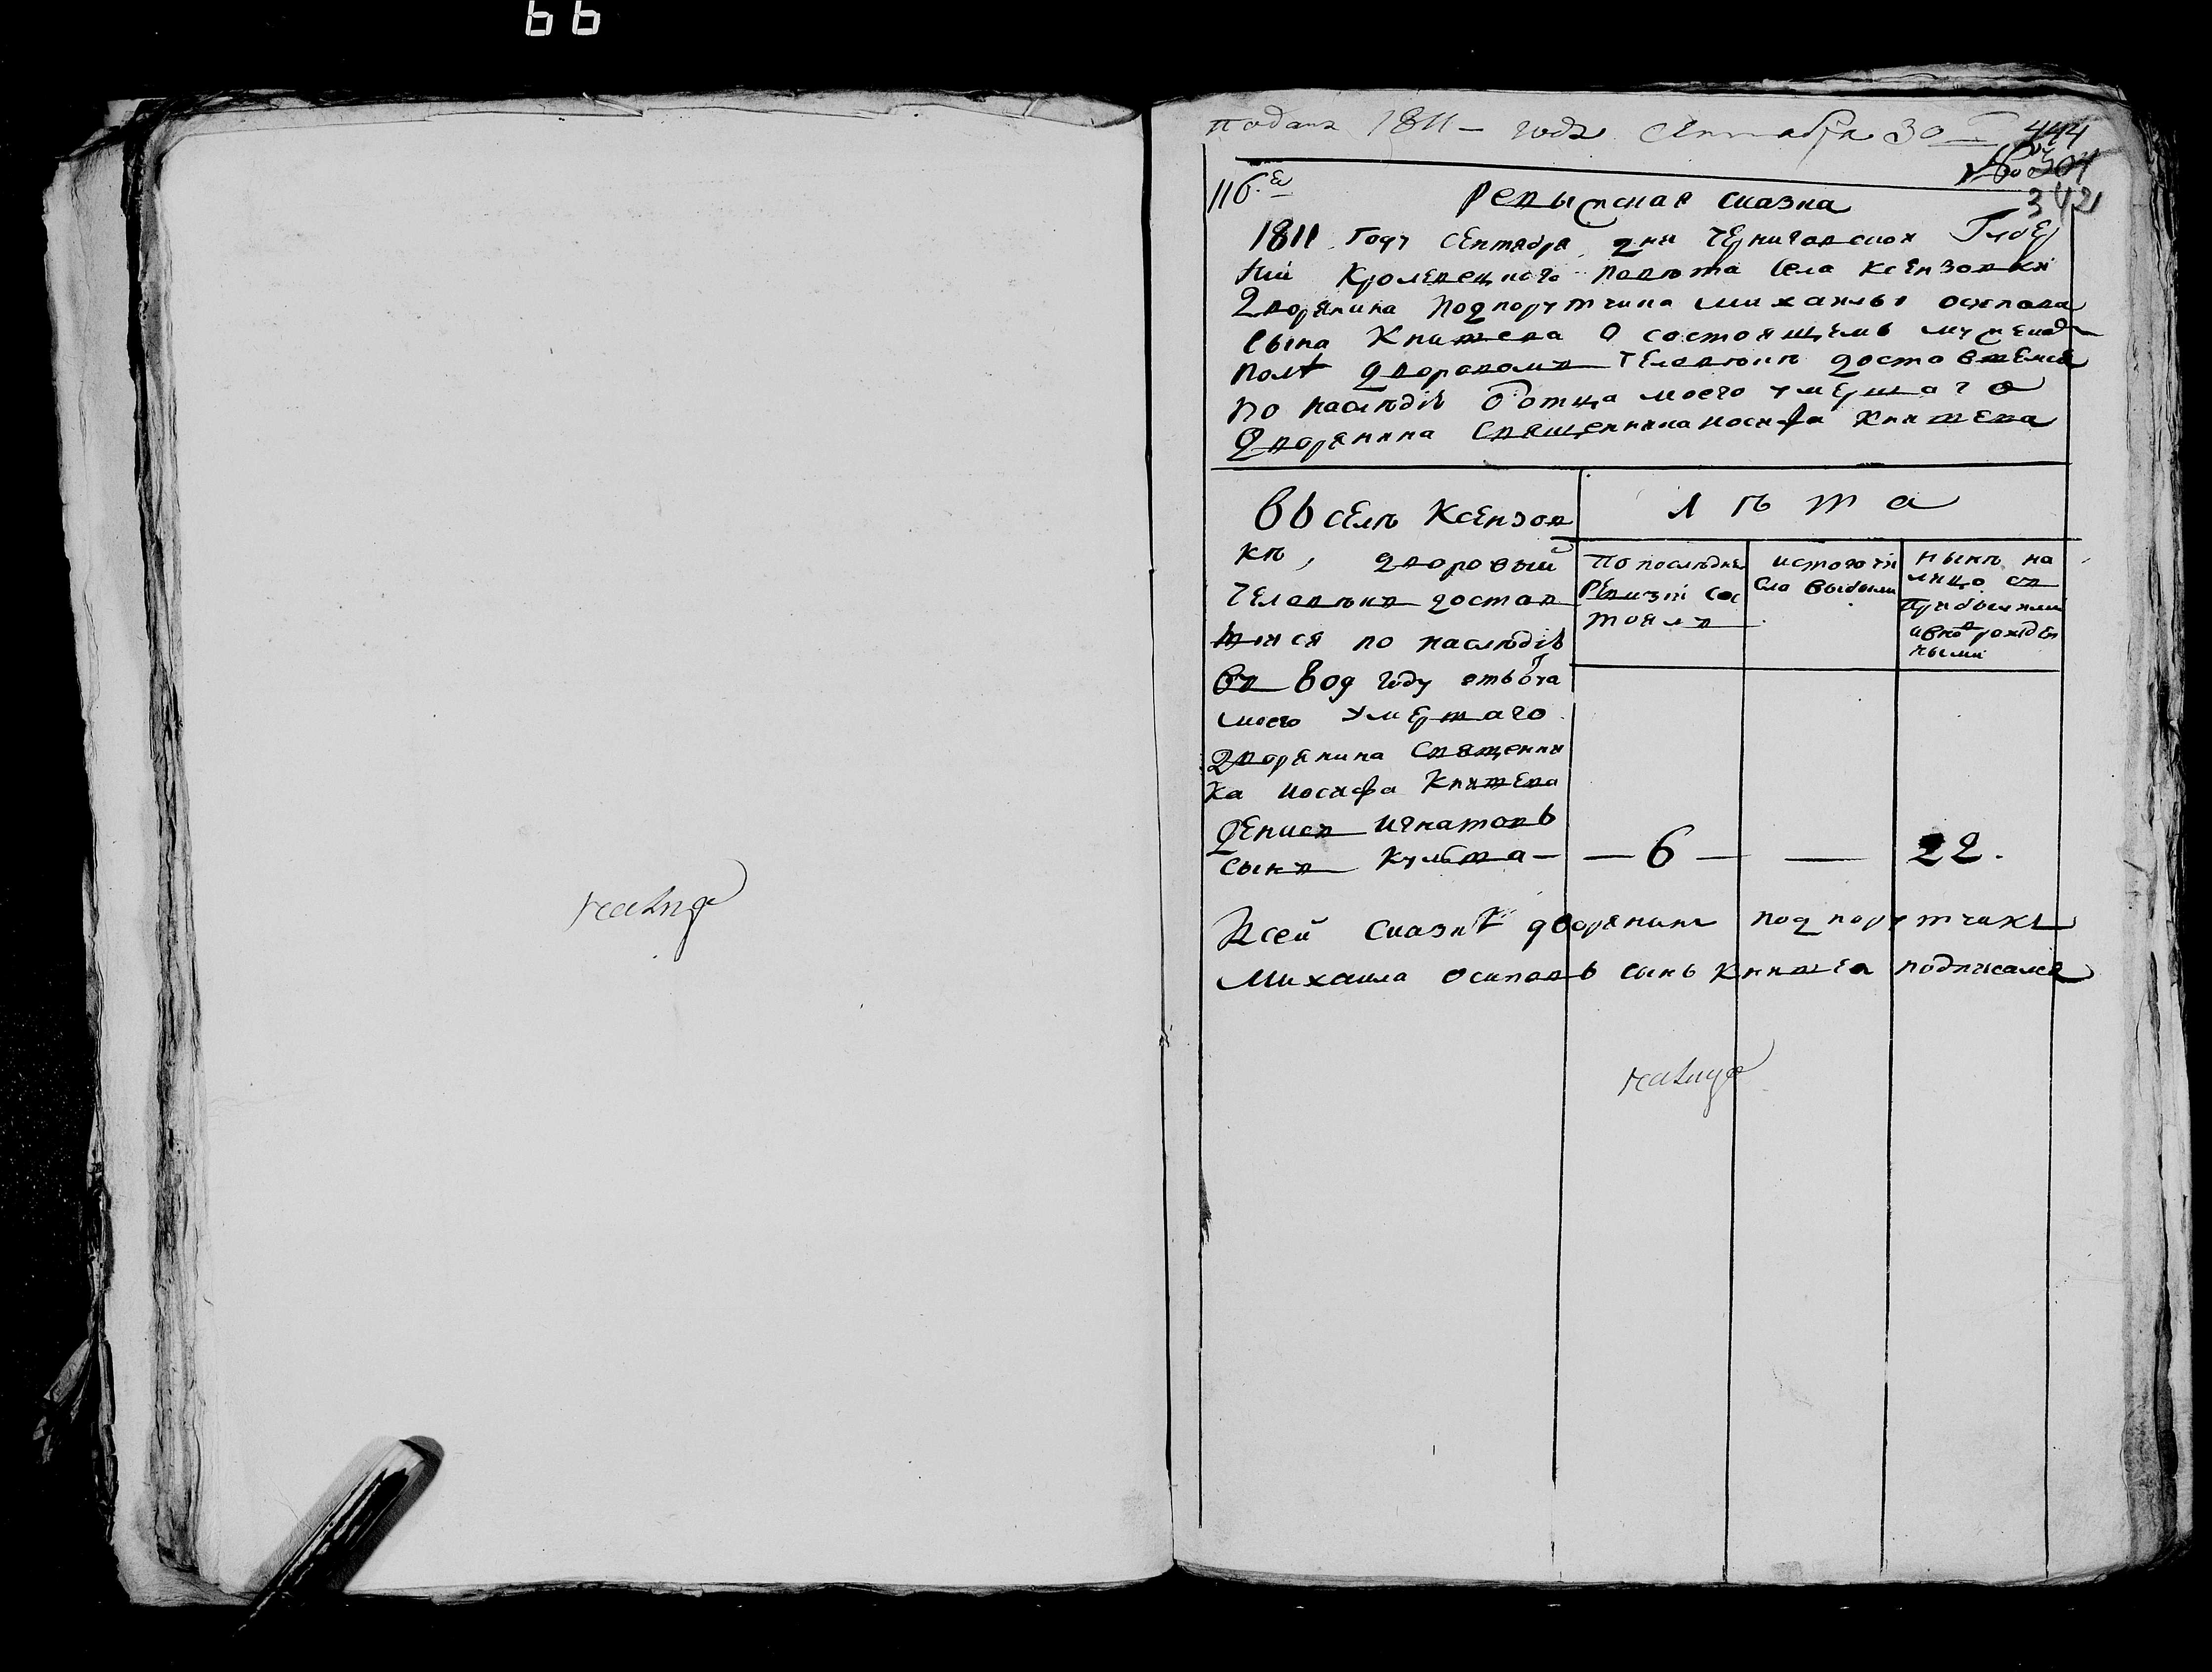 66
подана 1811 – года сентября 30
444
№ 304
342
116.е
Ревижская сказка
1811 Году сентября дня Черниговской Губер
ний Кролевецкого повѣта села Ксензовки
дворянина подпорутчика Михаилы осипова
сына Книшева о состоящемъ
дворовомъ человѣкѣ доставшемся
по наслѣдій отца моего умершаго
дворянина Священника иосифа Книшева
Въ селѣ Ксензов
кѣ, дворовый
человѣкъ достав
шийся по наслѣдій
году отъ отца
моего умершаго
дворянина Священни
ка иосифа Книшева
Денисъ Игнатовъ
сынъ
лѣта
По последней
Ревизiи сос
тоялъ
ис того чи
сла выбыли
Нынѣ на
лицо съ
прибылими
и вновъ рожден
ными
— 6 —
—
22.
К сей сказкѣ дворянинъ подпорутчикъ
Михаила осиповъ сынъ Книшевъ подписался